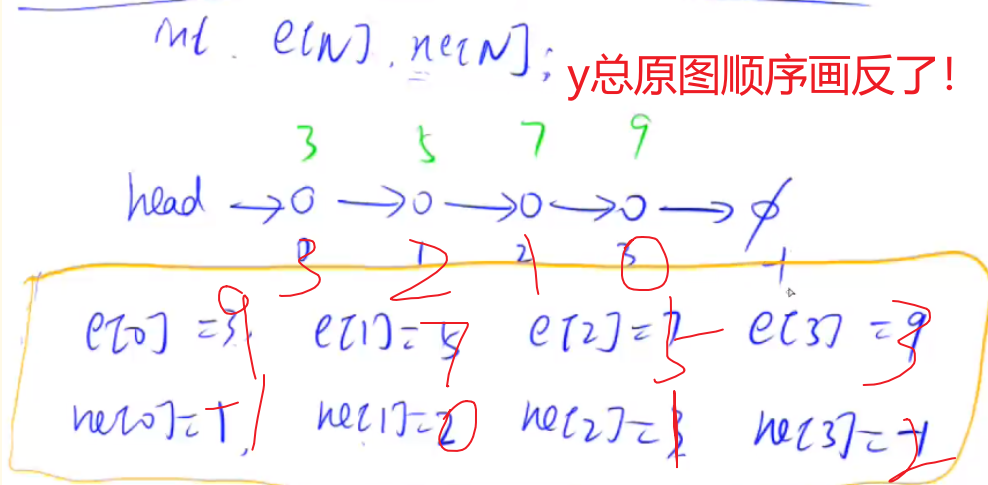 int e[N], ne[N];
y总原图顺序画反了!
3 5 7 9
head → O → O → O → O → ∅
0 1 2 3 -1
3 2 1 0
e[0] = 3 e[1] = 5 e[2] = 7 e[3] = 9
9 7 5 3
ne[0] = 1, ne[1] = 2 ne[2] = 3 ne[3] = -1
-1 0 1 2